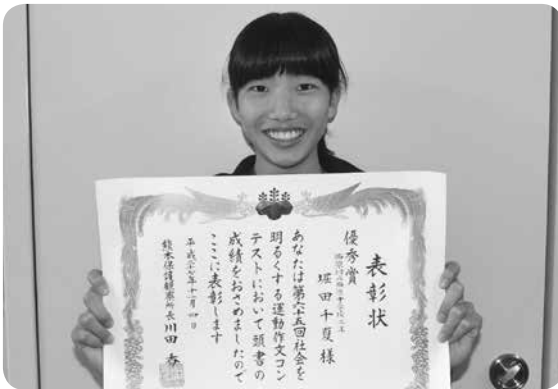 表彰状
優秀賞
堀田千夏様
あなたは第六十五回社会を
明るくする運動作文コン
テストにおいて頭書の
成績をおさめましたので
ここに表彰します
平成二十七年十一月四日
熊本保護観察所長 川田